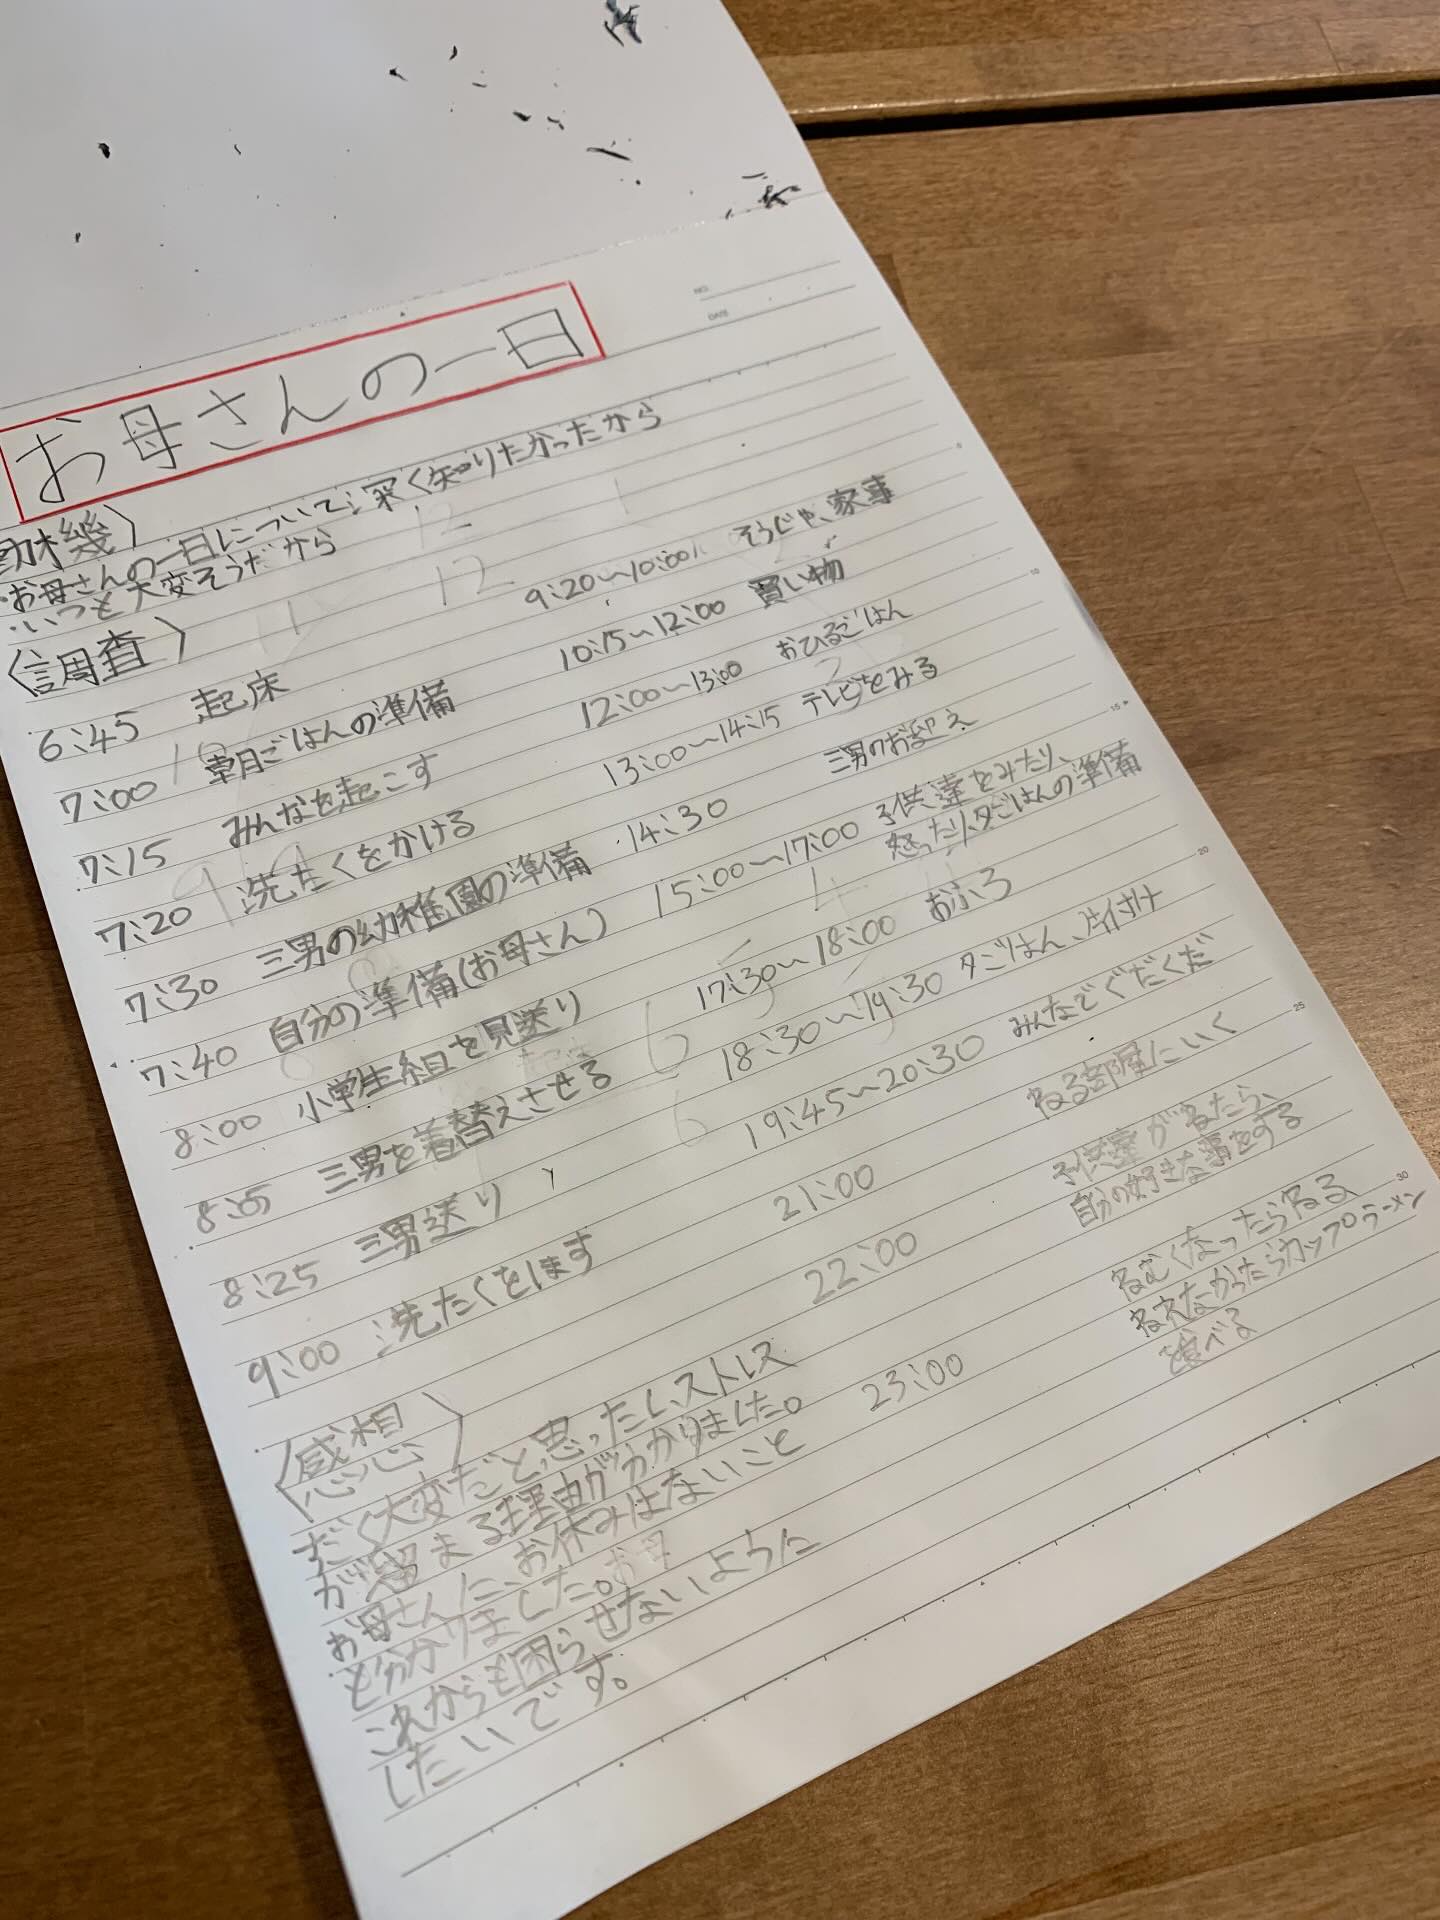 お母さんの一日
NO.
DATE
動機〉
・お母さんの一日について深く知りたかったから
・いつも大変そうだから
〈調査〉
6:45 起床
7:00 朝ごはんの準備
7:15 みんなを起こす
7:20 洗たくをかける
7:30 三男の幼稚園の準備
7:40 自分の準備(お母さん)
8:00 小学生組を見送り
8:05 三男を着替えさせる
8:25 三男送り
9:00 洗たくをほます
9:20〜10:00 そうじや、家事
10:15〜12:00 買い物
12:00〜13:00 おひるごはん
13:00〜14:15 テレビをみる
14:30 三男のお迎え
15:00〜17:00 子供達をみたり、
怒ったり、夕ごはんの準備
17:30〜18:00 おふろ
18:30〜19:30 夕ごはん、片付け
19:45〜20:30 みんなでぐだぐだ
21:00 ねる部屋にいく
22:00 子供達がねたら、
自分の好きな事をする
23:00 ねむくなったらねる
ねれなかったらカップラーメン
を食べる
〈感想〉
すごく大変だと思ったし、ストレス
が溜まる理由がわかりました。
お母さんに、お休みはないこと
も分かりました。
これからも困らせないように
したいです。